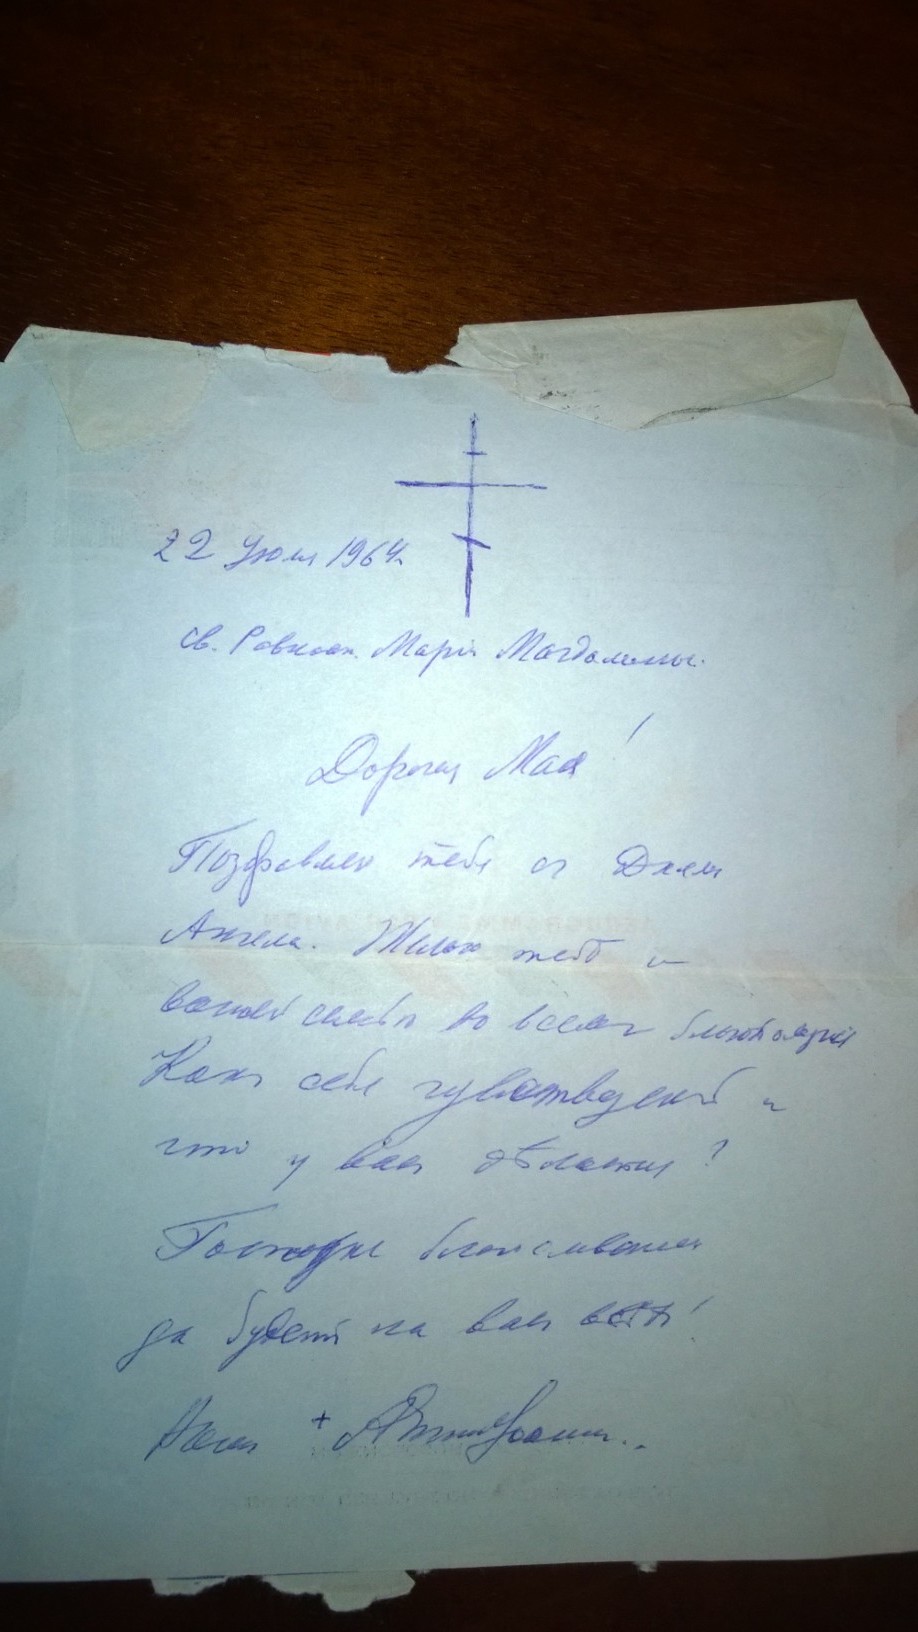 22 Июля 1964
св. Равноап. Маріи Магдалины.
Дорогая Мая!
Поздравляю тебя съ Днемъ
Ангела. Желаю тебѣ и
вашей семьѣ во всемъ благополучія
Какъ себя чувствуешь и
что у васъ дѣлается?
Господне благословеніе
да будетъ на васъ всѣхъ!
+